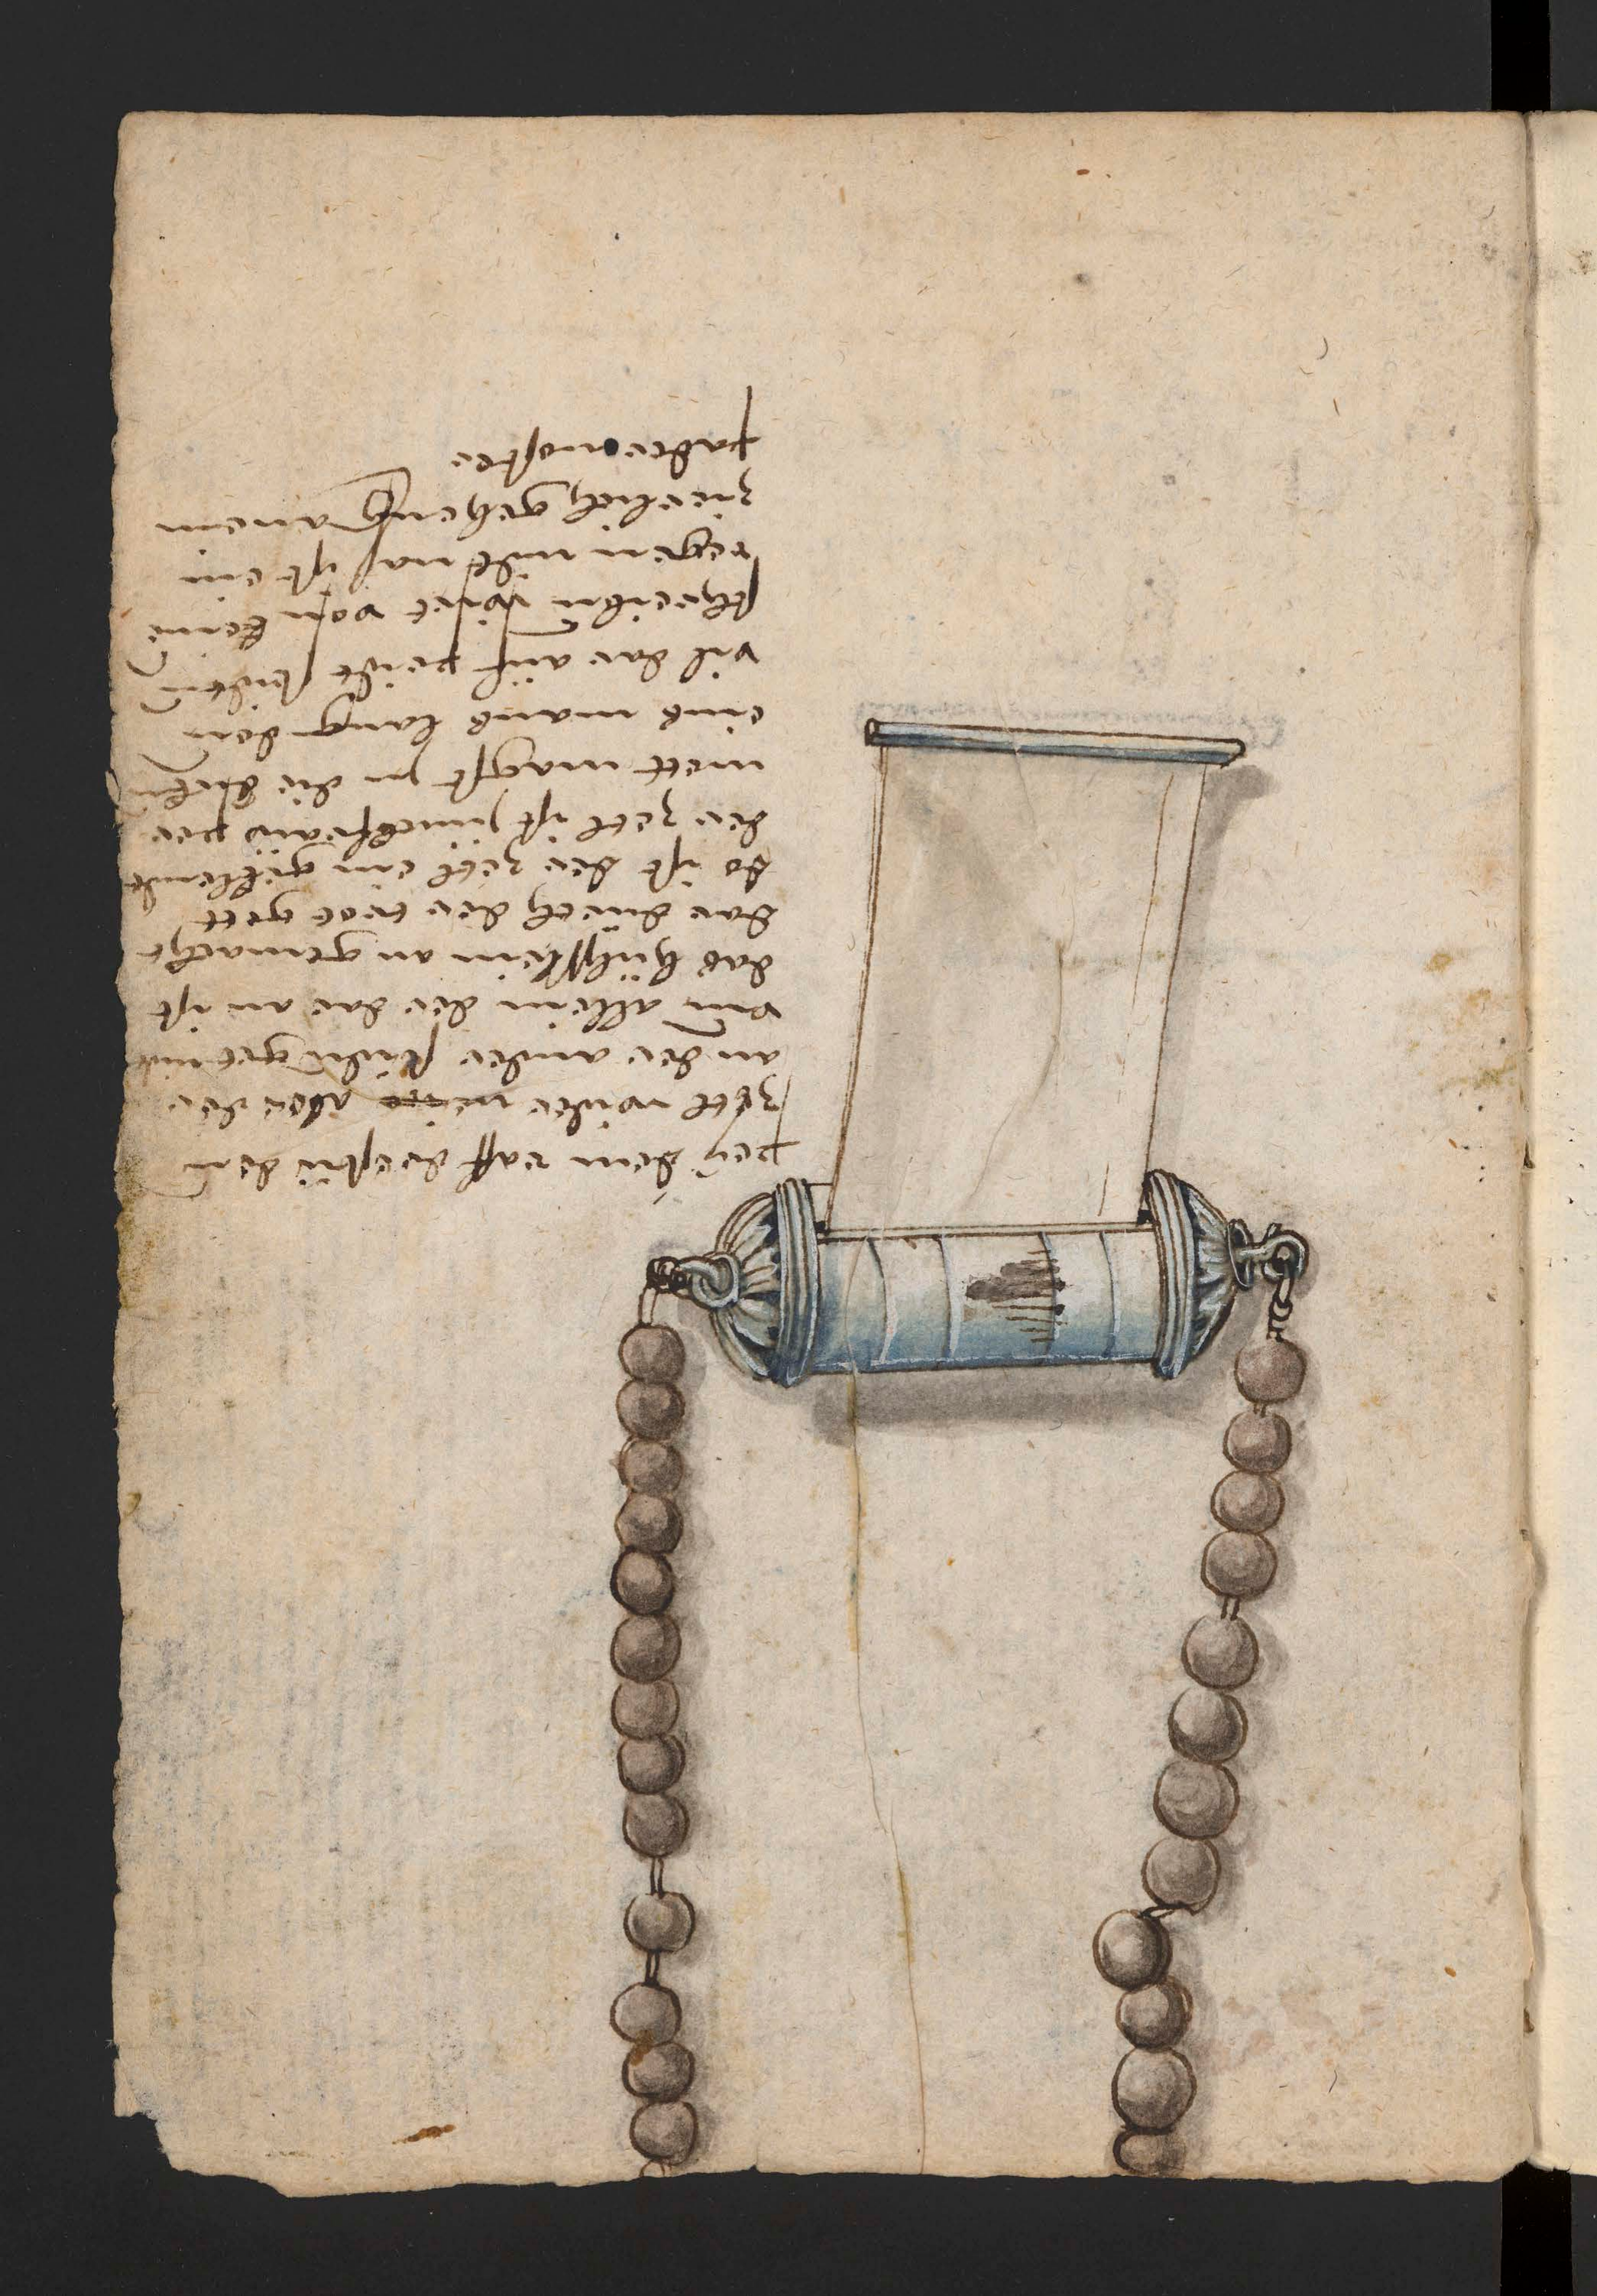 pey dem raff drestu den
zetl wider aber der
an der ander seiden get nit
vm allein der dar an ist
das hulsslein an gemacht
dar durch der trot gett
so ist der zetl ein gullende
der zetl ist junckfraw per
mett magst in die
eins mans lang den
vil dar auff peide seiten
schreiben wirt von keine
regen nidt nas ist ein
zierlich geheng an eim
pader noster